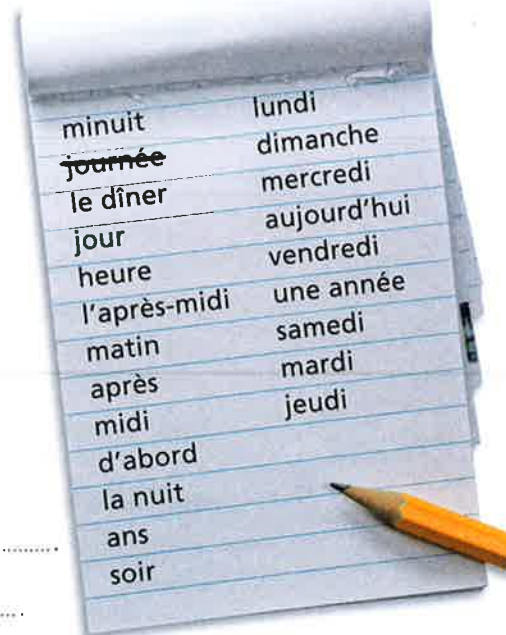 minuit
journée
le dîner
jour
heure
l'après-midi
matin
après
midi
d'abord
la nuit
ans
soir
lundi
dimanche
mercredi
aujourd'hui
vendredi
une année
samedi
mardi
jeudi